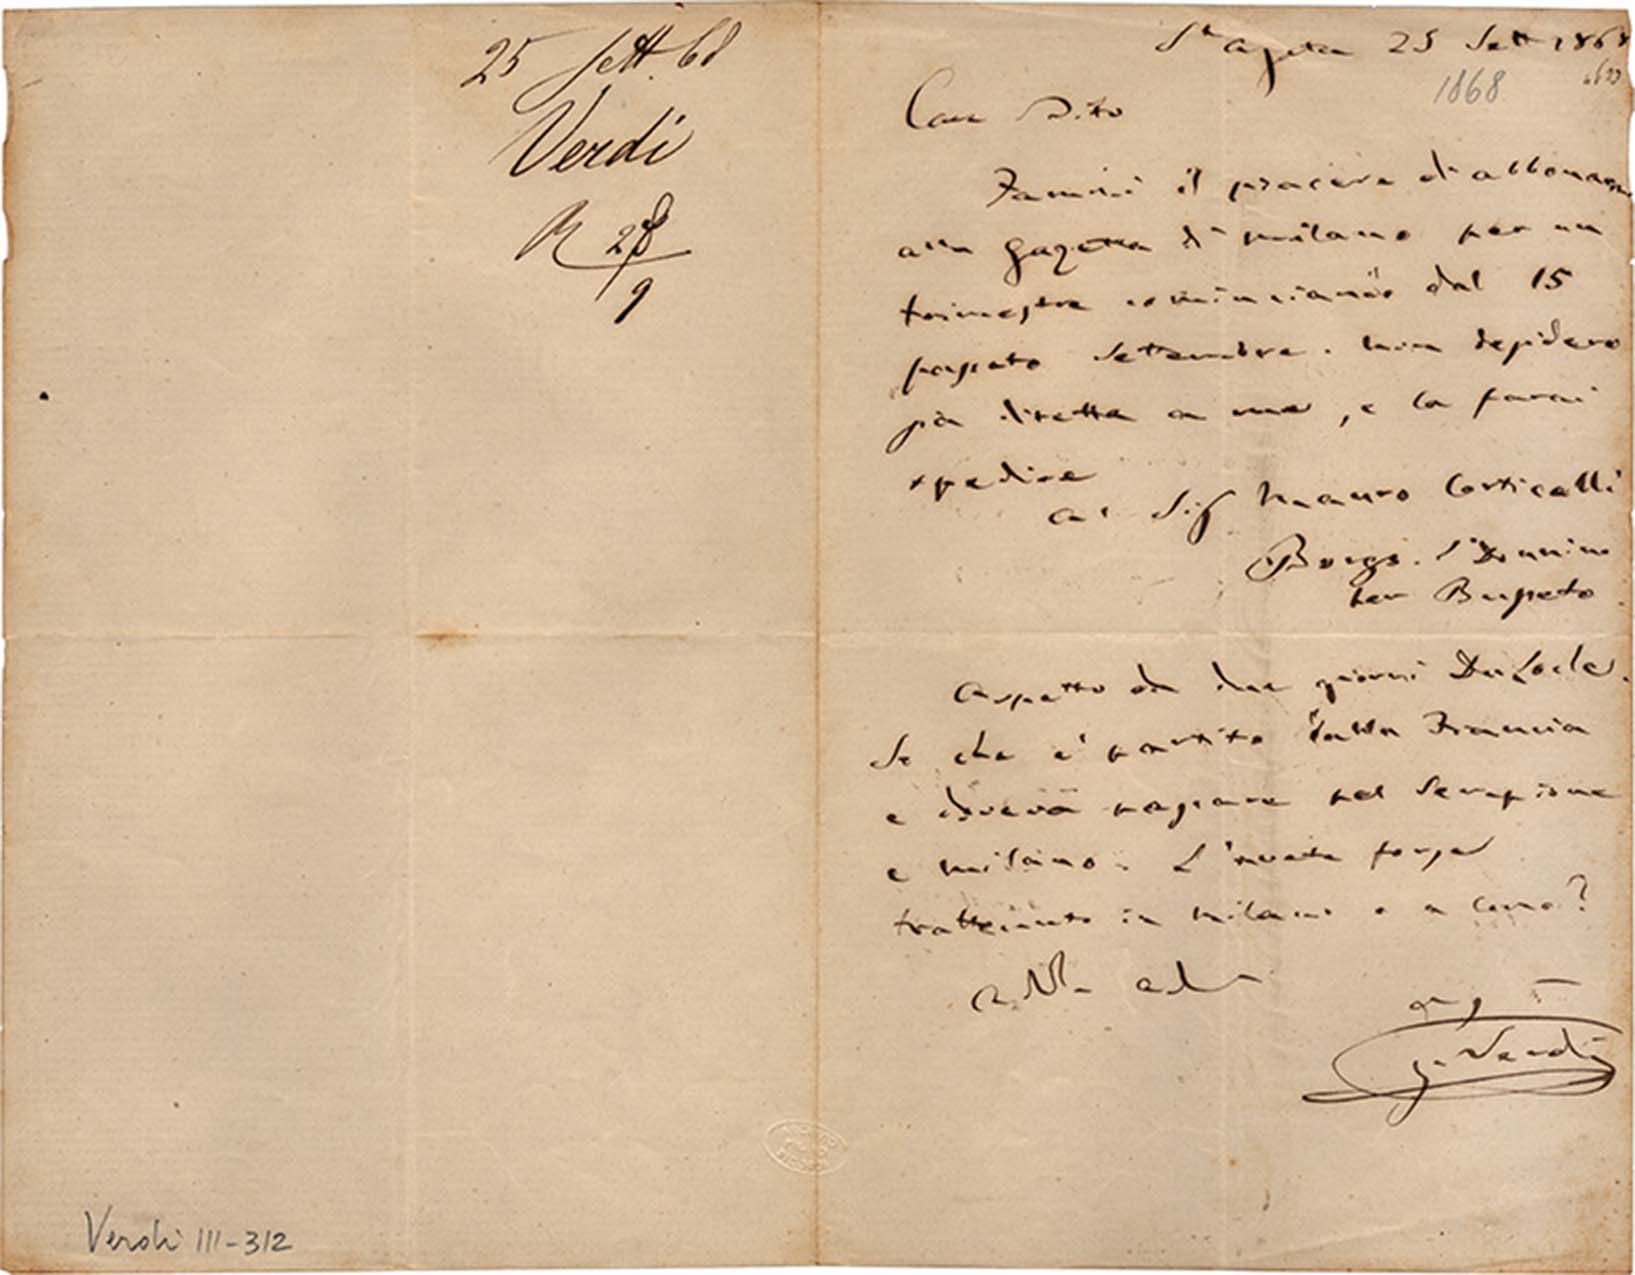 25 Sett. 68
Verdi
R 28
9
Verdi III-312
St Agata 25 Sett 1868
1868
Caro Tito
Fammi il piacere d'abbonarmi
alla Gazetta di Milano per un
trimestre cominciando dal 15
passato Settembre. Non desidero
sia diretta a me, e la farai
spedire
al Sig Mauro Corticelli
Borgo. S. Donnino
per Busseto
Aspetto da due giorni Du Locle.
So che è partito dalla Francia
e doveva passare pel Sempione
e Milano. L'avete forse
trattenuto in Milano o a Como?
Addio
G. Verdi